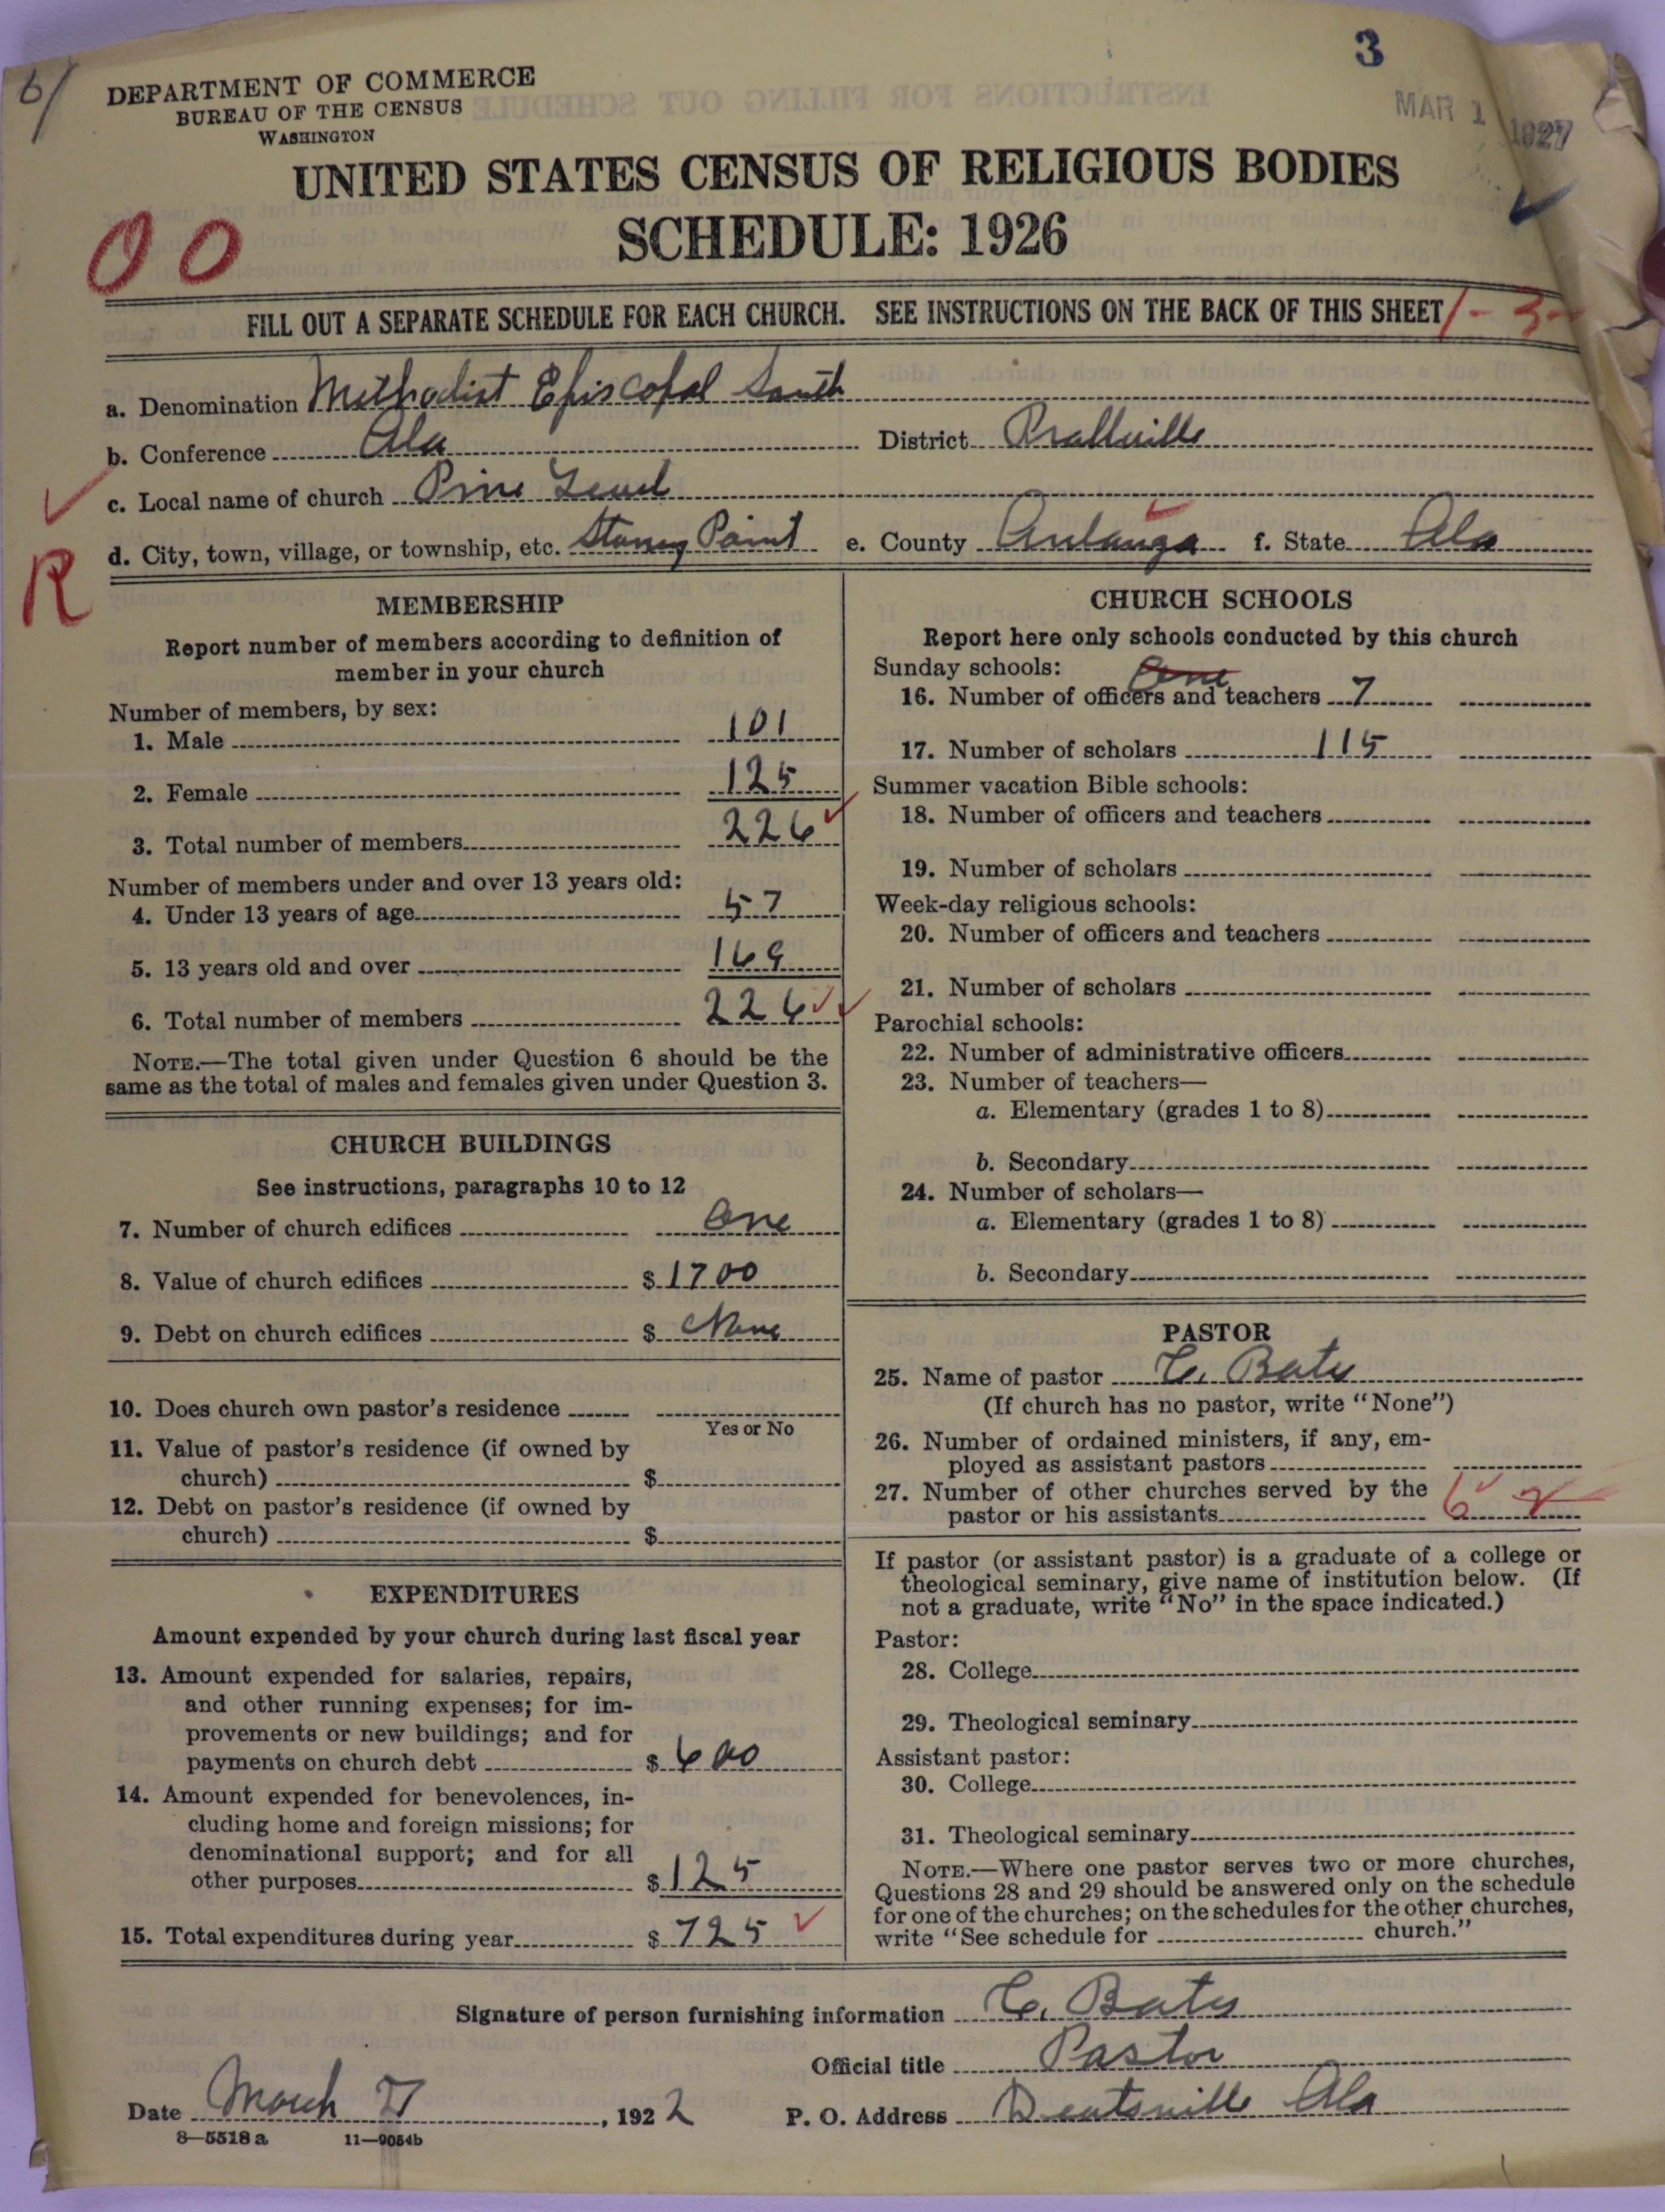 6/
3
DEPARTMENT OF COMMERCE
BUREAU OF THE CENSUS
WASHINGTON
MAR 1 1927
UNITED STATES CENSUS OF RELIGIOUS BODIES
SCHEDULE: 1926
00
FILL OUT A SEPARATE SCHEDULE FOR EACH CHURCH. SEE INSTRUCTIONS ON THE BACK OF THIS SHEET
1-3-
a. Denomination Methodist Episcopal South
b. Conference Ala District Prattville
c. Local name of church Pine Level
d. City, town, village, or township, etc. Stoney Point e. County Autauga f. State Ala
R
MEMBERSHIP
Report number of members according to definition of
member in your church
Number of members, by sex:
1. Male 101
2. Female 125
3. Total number of members 226
Number of members under and over 13 years old:
4. Under 13 years of age 57
5. 13 years old and over 169
6. Total number of members 226
NOTE.—The total given under Question 6 should be the
same as the total of males and females given under Question 3.
CHURCH BUILDINGS
See instructions, paragraphs 10 to 12
7. Number of church edifices One
8. Value of church edifices $ 1700
9. Debt on church edifices $ None
10. Does church own pastor's residence
Yes or No
11. Value of pastor's residence (if owned by
church) $
12. Debt on pastor's residence (if owned by
church) $
EXPENDITURES
Amount expended by your church during last fiscal year
13. Amount expended for salaries, repairs,
and other running expenses; for im-
provements or new buildings; and for
payments on church debt $ 600
14. Amount expended for benevolences, in-
cluding home and foreign missions; for
denominational support; and for all
other purposes $ 125
15. Total expenditures during year $ 725
CHURCH SCHOOLS
Report here only schools conducted by this church
Sunday schools: One
16. Number of officers and teachers 7
17. Number of scholars 115
Summer vacation Bible schools:
18. Number of officers and teachers
19. Number of scholars
Week-day religious schools:
20. Number of officers and teachers
21. Number of scholars
Parochial schools:
22. Number of administrative officers
23. Number of teachers—
a. Elementary (grades 1 to 8)
b. Secondary
24. Number of scholars—
a. Elementary (grades 1 to 8)
b. Secondary
PASTOR
25. Name of pastor C. Bates
(If church has no pastor, write "None")
26. Number of ordained ministers, if any, em-
ployed as assistant pastors
27. Number of other churches served by the
pastor or his assistants 6
If pastor (or assistant pastor) is a graduate of a college or
theological seminary, give name of institution below. (If
not a graduate, write "No" in the space indicated.)
Pastor:
28. College
29. Theological seminary
Assistant pastor:
30. College
31. Theological seminary
NOTE.—Where one pastor serves two or more churches,
Questions 28 and 29 should be answered only on the schedule
for one of the churches; on the schedules for the other churches,
write "See schedule for church."
Signature of person furnishing information C. Bates
Official title Pastor
Date March 21, 1922 P. O. Address Deatsville Ala
8—5518 a 11—9054b